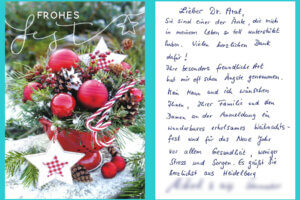 FROHES
Fest
Lieber Dr. Arat,
Sie sind einer der Ärzte, die mich
in meinem Leben so toll unterstützt
haben. Vielen herzlichen Dank
dafür!
Ihre besonders freundliche Art
hat mir oft schon Ängste genommen.
Mein Mann und ich wünschen
Ihnen, Ihrer Familie und den
Damen an der Anmeldung ein
wunderbares erholsames Weihnachts-
fest und für das Neue Jahr
vor allem Gesundheit, weniger
Stress und Sorgen. Es grüßt Sie
herzlichst aus Heidelberg